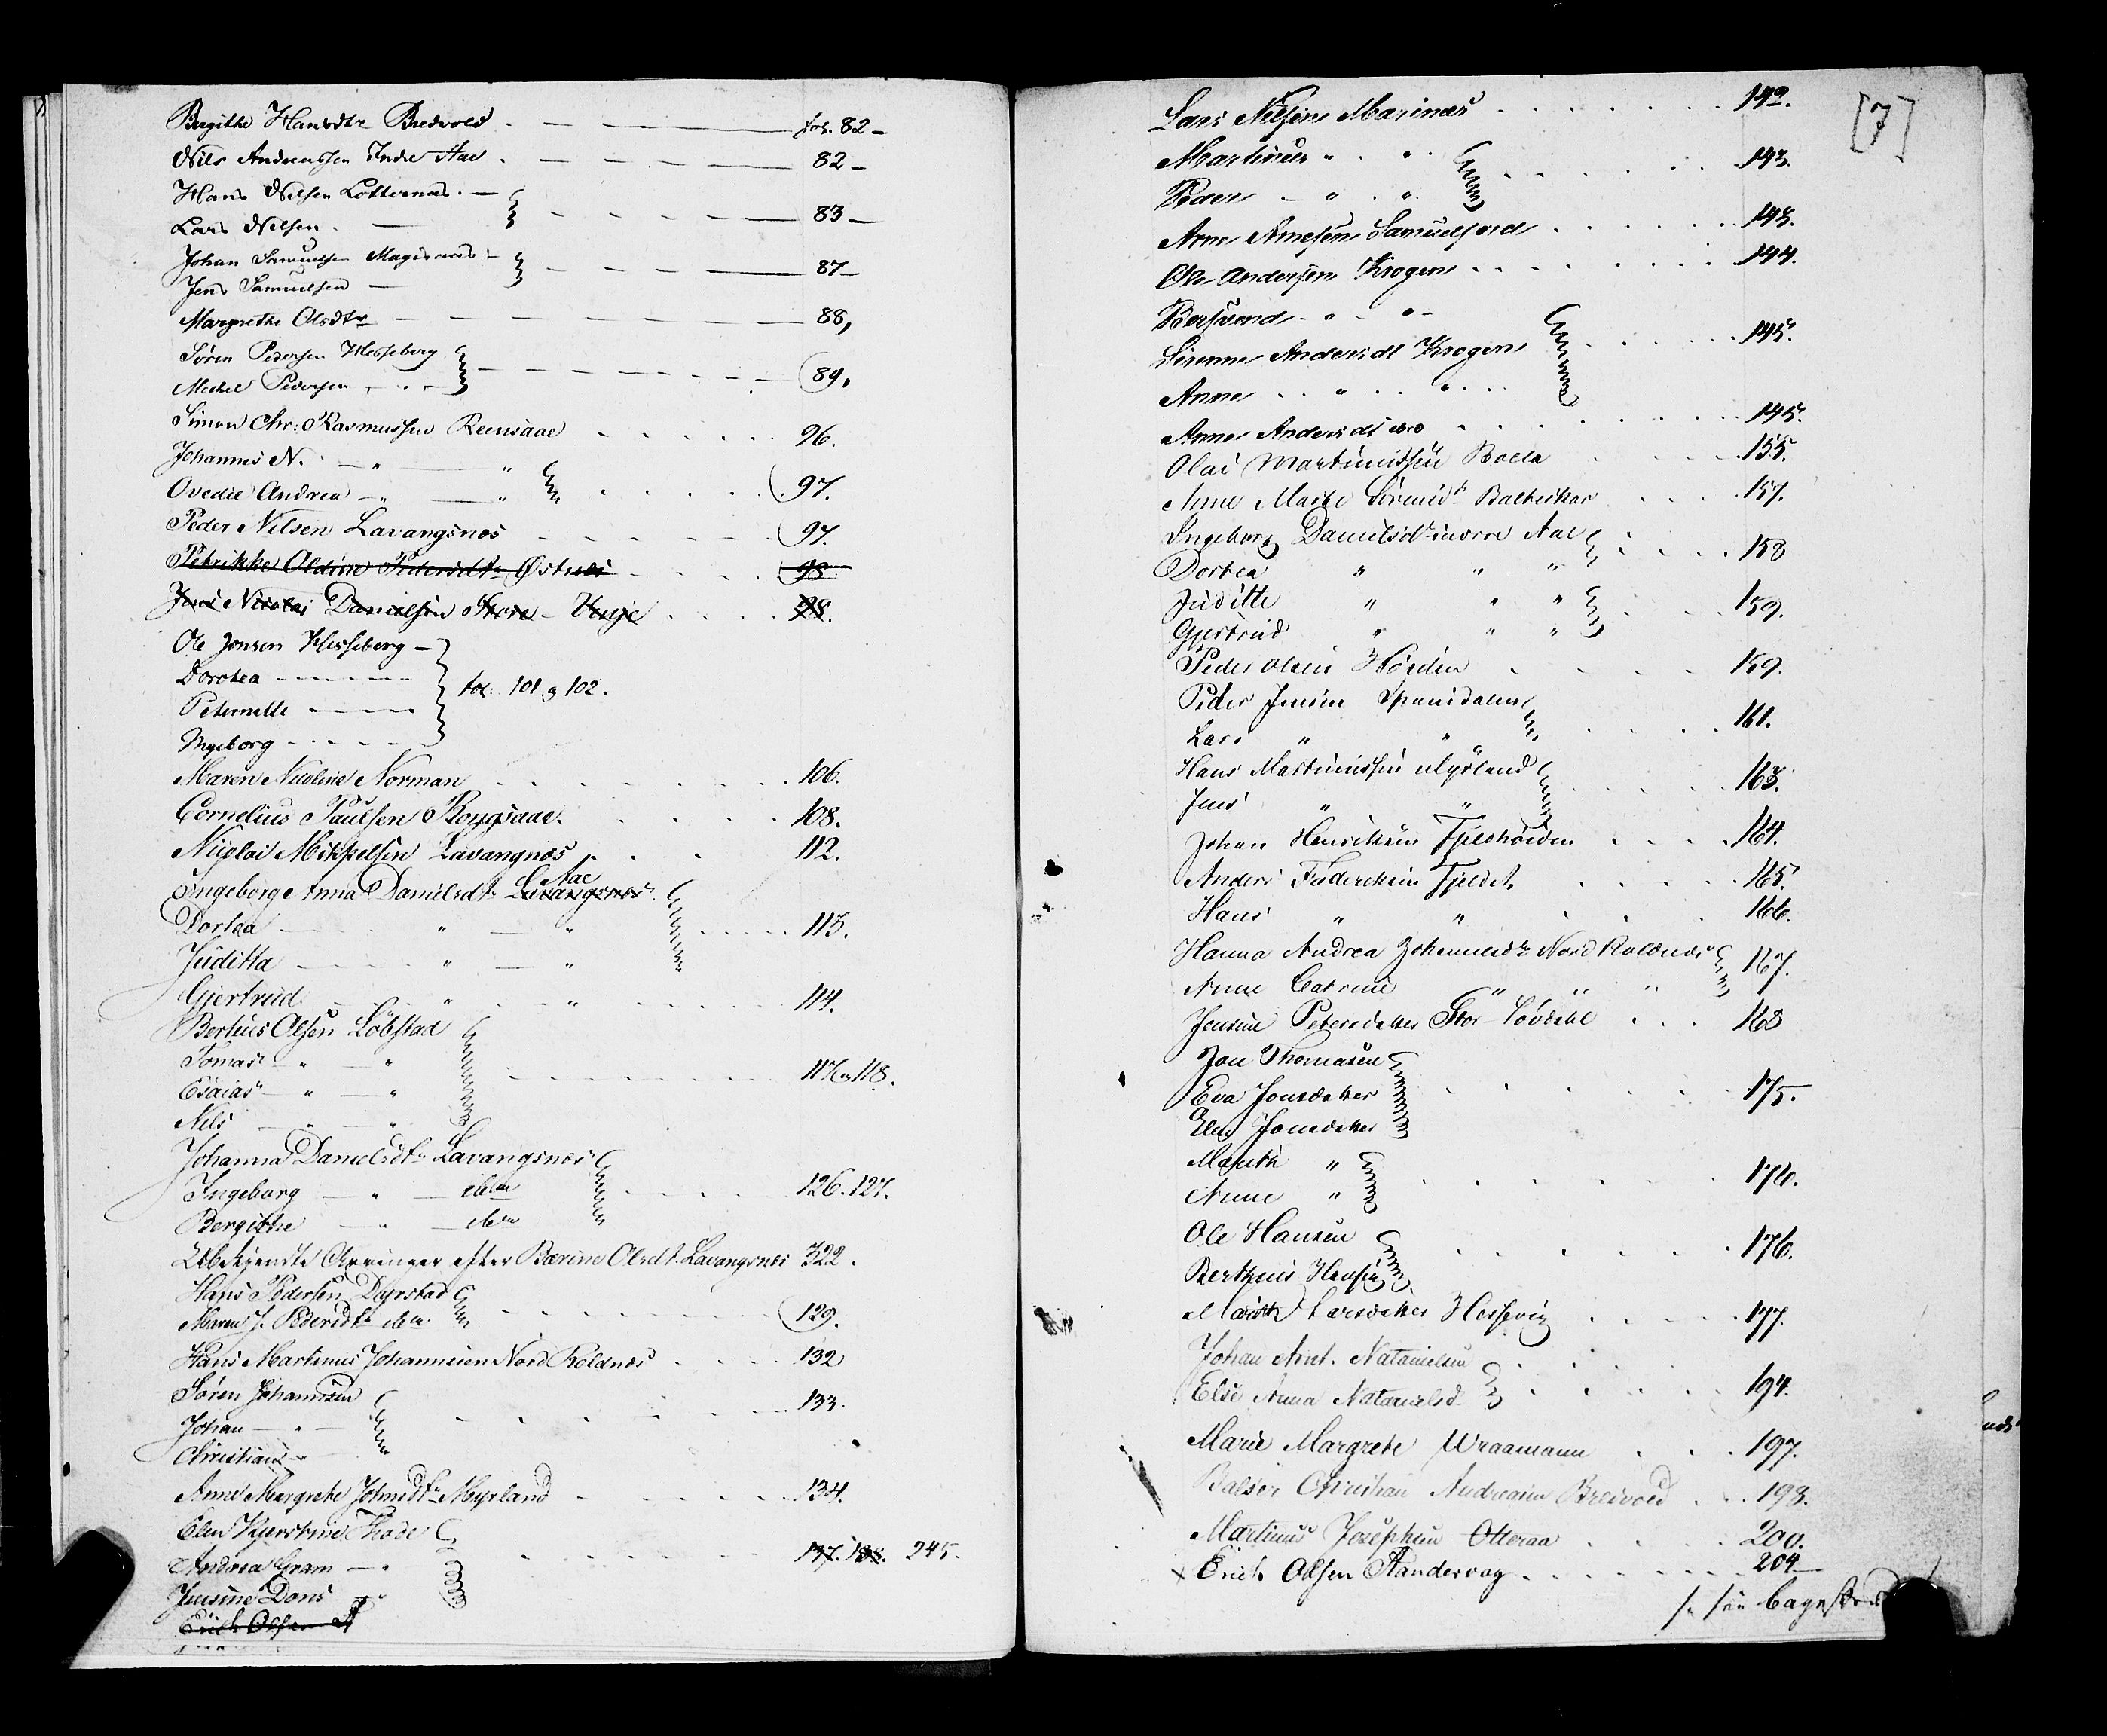 Bergithe Hansdtr Bredvold . — fol. 82 —
Nils Andreassen Indre Aae . — 82 —
Hans Nilsen Lotternæs . —
Lars Nilsen . — 83 —
Johan Samuelsen Magisnæs —
Jens Samuelsen — 87 —
Margrethe Olsdtr — 88,
Søren Pedersen Hesseberg
Mechel Pedersen 89.
Simon Chr: Rasmussen Reensaae 96.
Johannes N. — " — "
Ovedie Andrea — " — " 97.
Peder Nilsen Lavangsnæs 97.
Petrikke Oldine Pedersdtr Østnæs 98
Jens Nicolai Danielsen Store - Vinje 98.
Ole Jonsen Hesseberg —
Dorotea
Peternelle fol: 101 og 102.
Ingeborg
Maren Nicoline Norman 106.
Cornelius Paulsen Rongsaae. 108.
Nicolai Mikkelsen Lavangnæs 112.
Aae
Ingeborg Anna Danielsdtr Lavangsnæs
Dortea " — " 113.
Juditta " — "
Gjertrud " " 114.
Bertius Olsen Løbstad
Tomas " — "
Esaias — " — " 117 og 118.
Nils — " — "
Johanna Danielsdtr Lavangsnæs
Ingeborg — " — ibm 126. 127.
Bergithe — " — ibm
Ubekjendte Arvinger efter Bærine Olsdt. Lavangsnæs 322.
Hans Pedersen Dyrstad
Maren J. Pedersdtr ibm 129.
Hans Martinus Johannesen Nord Roldnæs 132
Søren Johannesen
Johan — " — 133.
Christian — "
Anne Margrethe Johnsdtr Myrland 134.
Elen Kjerstine Thode
Andrea Gram — " 137. 138. 245.
Jensine Dons "
Erich Olsen
Lars Nilsen Marinæs 142.
[7]
Martinus " . " 143.
Peder — " . "
Arne Arnesen Samuelfjord 143.
Ole Andersen Krogen 144.
Bersvend - " - " -
Sirenne Andersdt Krogen 145.
Anne . . " . . "
Anne Andersdt ibd 145.
Olai Martinussen Bolla 155.
Anne Marte Sørensdtr Balteskar 157.
Ingeborg Danielsdtr inderre Aae
Dortea " " " 158
Juditte " " "
Gjertrud " " " 159.
Peder Olsen Høiden 159.
Peder Jensen Spansdalen
Lars " " 161.
Hans Martinussen Myrland
Jens " " 163.
Johan Henriksen Fjeldhøiden 164.
Anders Fredericksen Fjeldet 165.
Hans " " 166.
Hanna Andrea Johannesdtr Nord Roldnæs
Anne Catrine " " " 167.
Jensine Pedersdatter Stor- 168
Jon Thomasen
Eva Jonsdatter 175.
Elen Jonsdatter
Marith "
Anne " 176.
Ole Hansen
Bertheus Hansen 176.
Marith Larsdatter Hessevig 177.
Johan Ant. Natanielsen
Else Anna Natanielsd 194.
Marie Margrete Wraamann 197.
Balser Christian Andreasen Breivold 198.
Martinus Josephsen Otteraa 200.
x Erich Olsen Sandevog 204 —